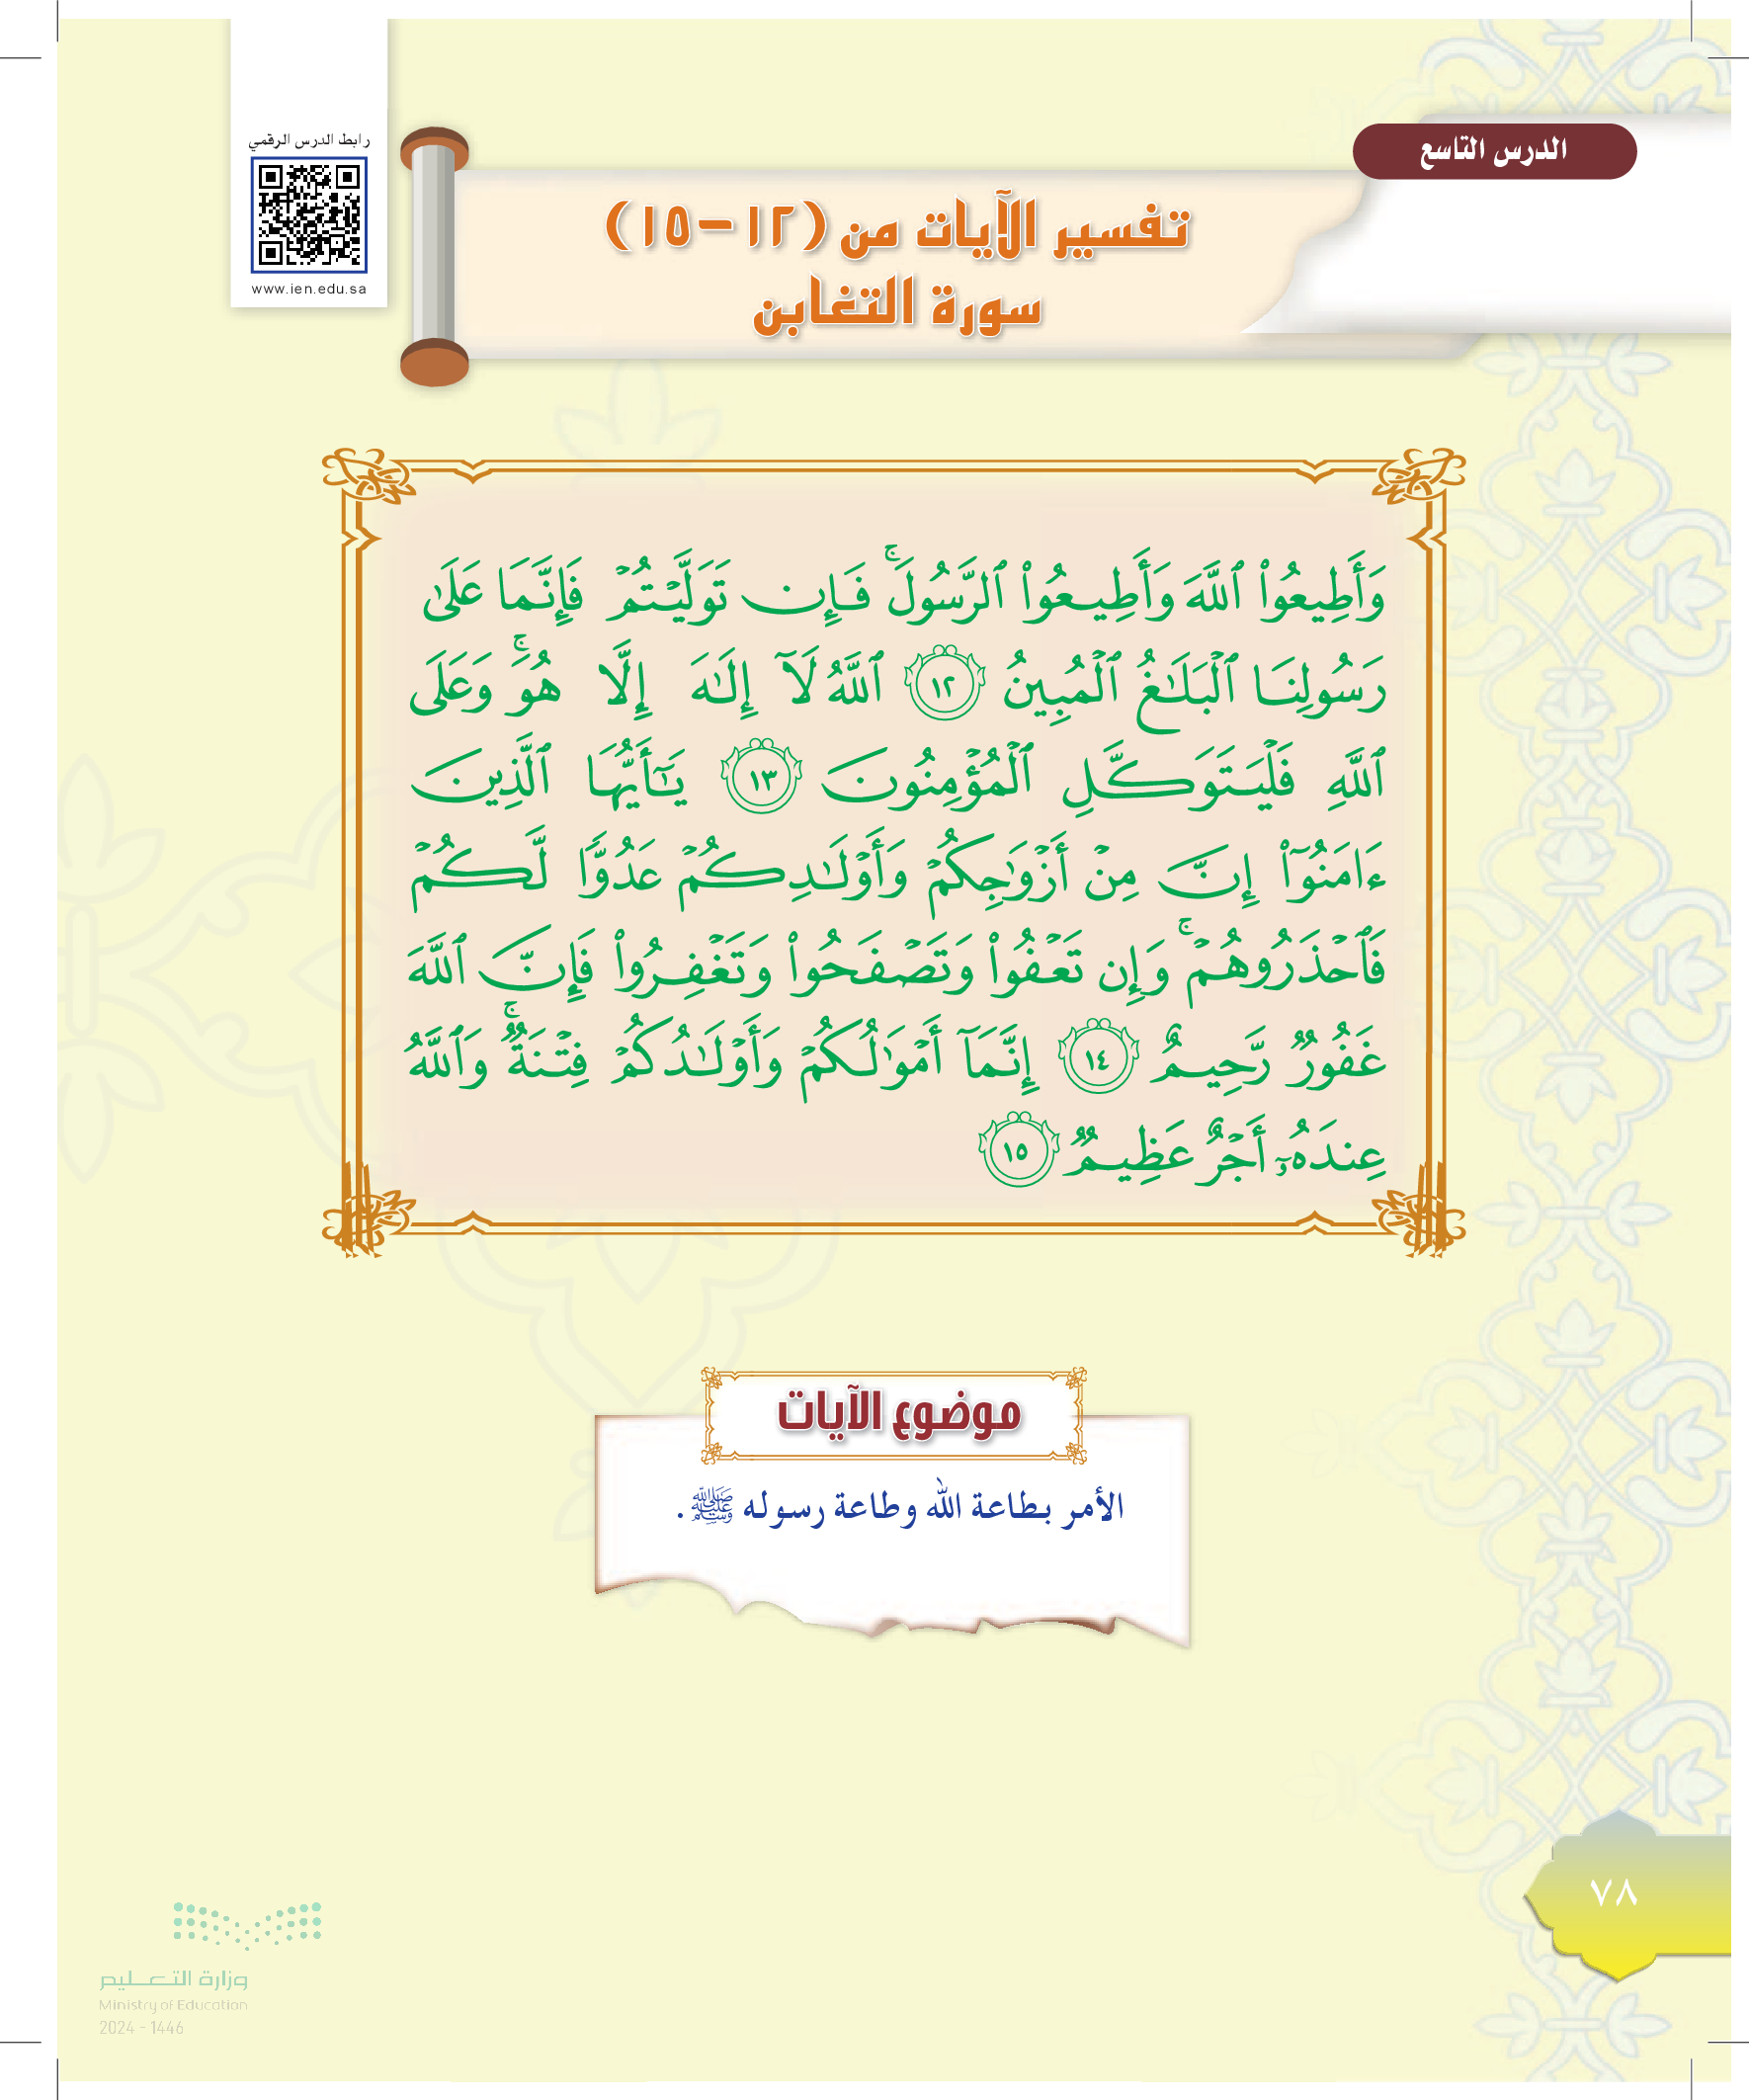 الدرس التاسع
رابط الدرس الرقمي
www.ien.edu.sa
تفسير الآيات من (١٢-١٥)
سورة التغابن
وَأَطِيعُوا۟ ٱللَّهَ وَأَطِيعُوا۟ ٱلرَّسُولَ ۚ فَإِن تَوَلَّيْتُمْ فَإِنَّمَا عَلَىٰ
رَسُولِنَا ٱلْبَلَـٰغُ ٱلْمُبِينُ ١٢ ٱللَّهُ لَآ إِلَـٰهَ إِلَّا هُوَ ۚ وَعَلَى
ٱللَّهِ فَلْيَتَوَكَّلِ ٱلْمُؤْمِنُونَ ١٣ يَـٰٓأَيُّهَا ٱلَّذِينَ
ءَامَنُوٓا۟ إِنَّ مِنْ أَزْوَٰجِكُمْ وَأَوْلَـٰدِكُمْ عَدُوًّا لَّكُمْ
فَٱحْذَرُوهُمْ ۚ وَإِن تَعْفُوا۟ وَتَصْفَحُوا۟ وَتَغْفِرُوا۟ فَإِنَّ ٱللَّهَ
غَفُورٌ رَّحِيمٌ ١٤ إِنَّمَآ أَمْوَٰلُكُمْ وَأَوْلَـٰدُكُمْ فِتْنَةٌ ۚ وَٱللَّهُ
عِندَهُۥٓ أَجْرٌ عَظِيمٌ ١٥
موضوع الآيات
الأمر بطاعة الله وطاعة رسوله ﷺ .
٧٨
وزارة التعليم
Ministry of Education
2024 - 1446